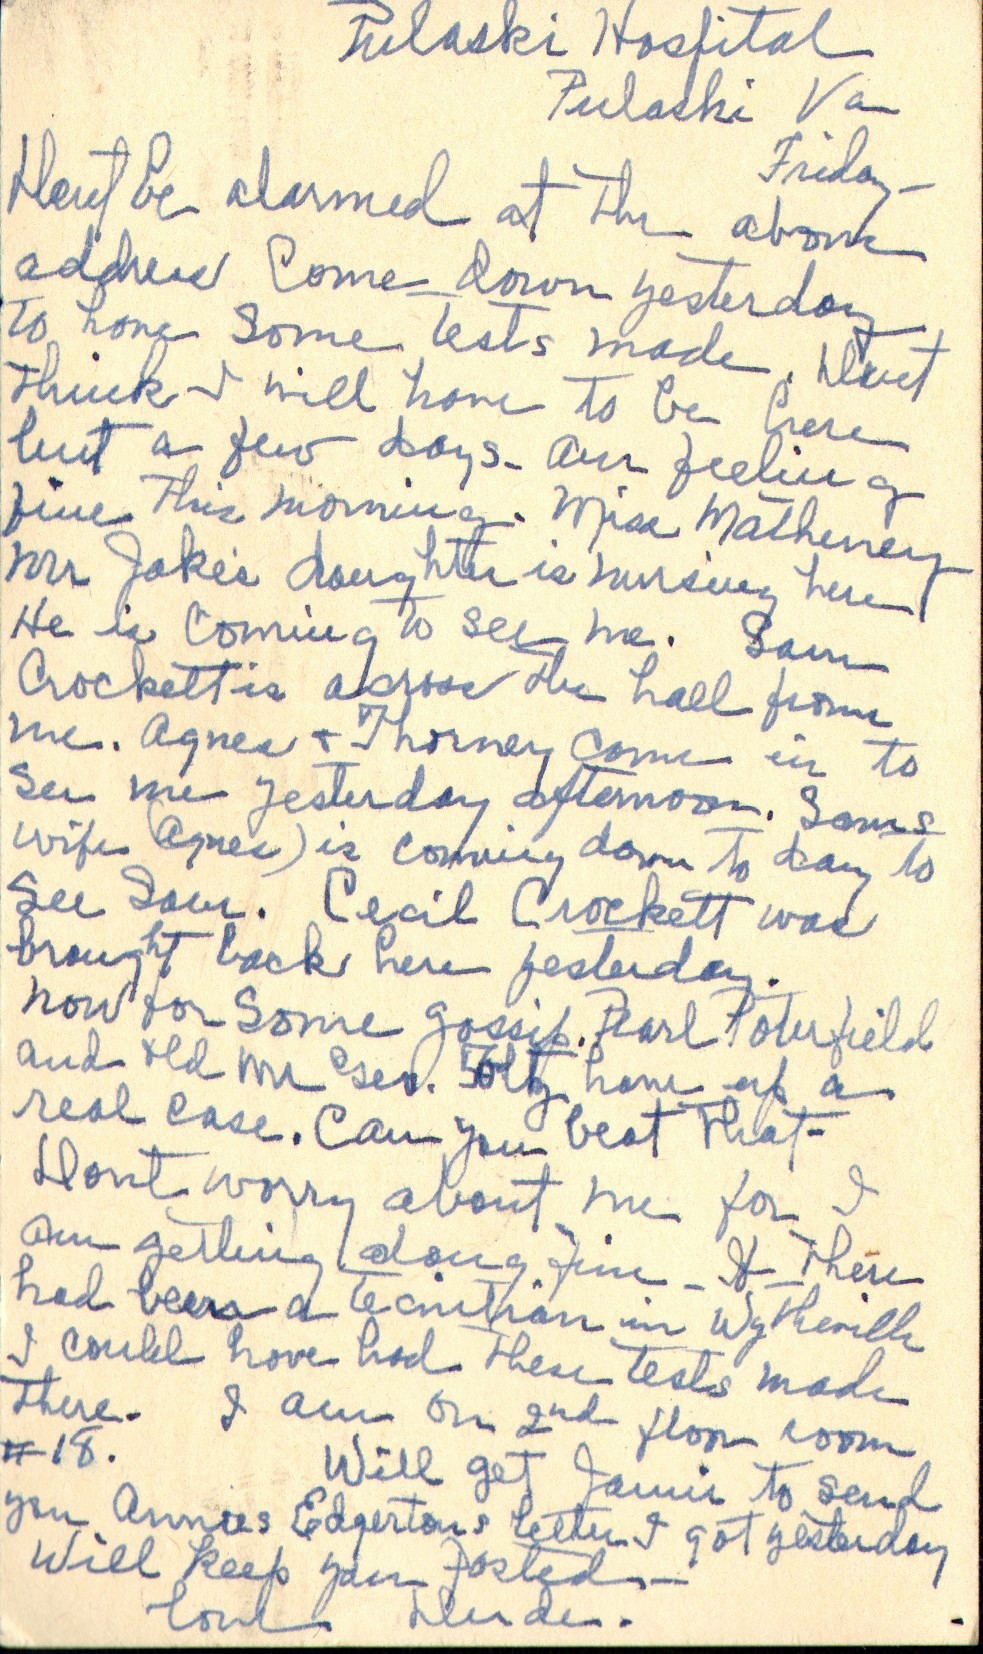 Pulaski Hospital
Pulaski Va
Friday-
Dont be alarmed at the above
address Come down yesterday
to have some tests made. Dont
think I will have to be here
but a few days- am feeling
fine this morning. Miss Matheney
Mr Jake's daughter is nursing here
He is coming to see me. Sam
Crockett is across the hall from
me. Agnes & Thorney came in to
see me yesterday afternoon. Sams
wife (Agnes) is coming down to day to
see Sam. Cecil Crockett was
brought back here yesterday.
now for some gossip. Pearl Poterfield
and old Mr Geo. have up a
real case. Can you beat that-
Dont worry about me for I
am getting along fine - If there
had been a tecnitian in Wytheville
I could have had these tests made
there. I am on 2nd floor room
#18.
Will get Jamie to send
you Annies Edgertons letter I got yesterday
Will keep you posted.-
Love